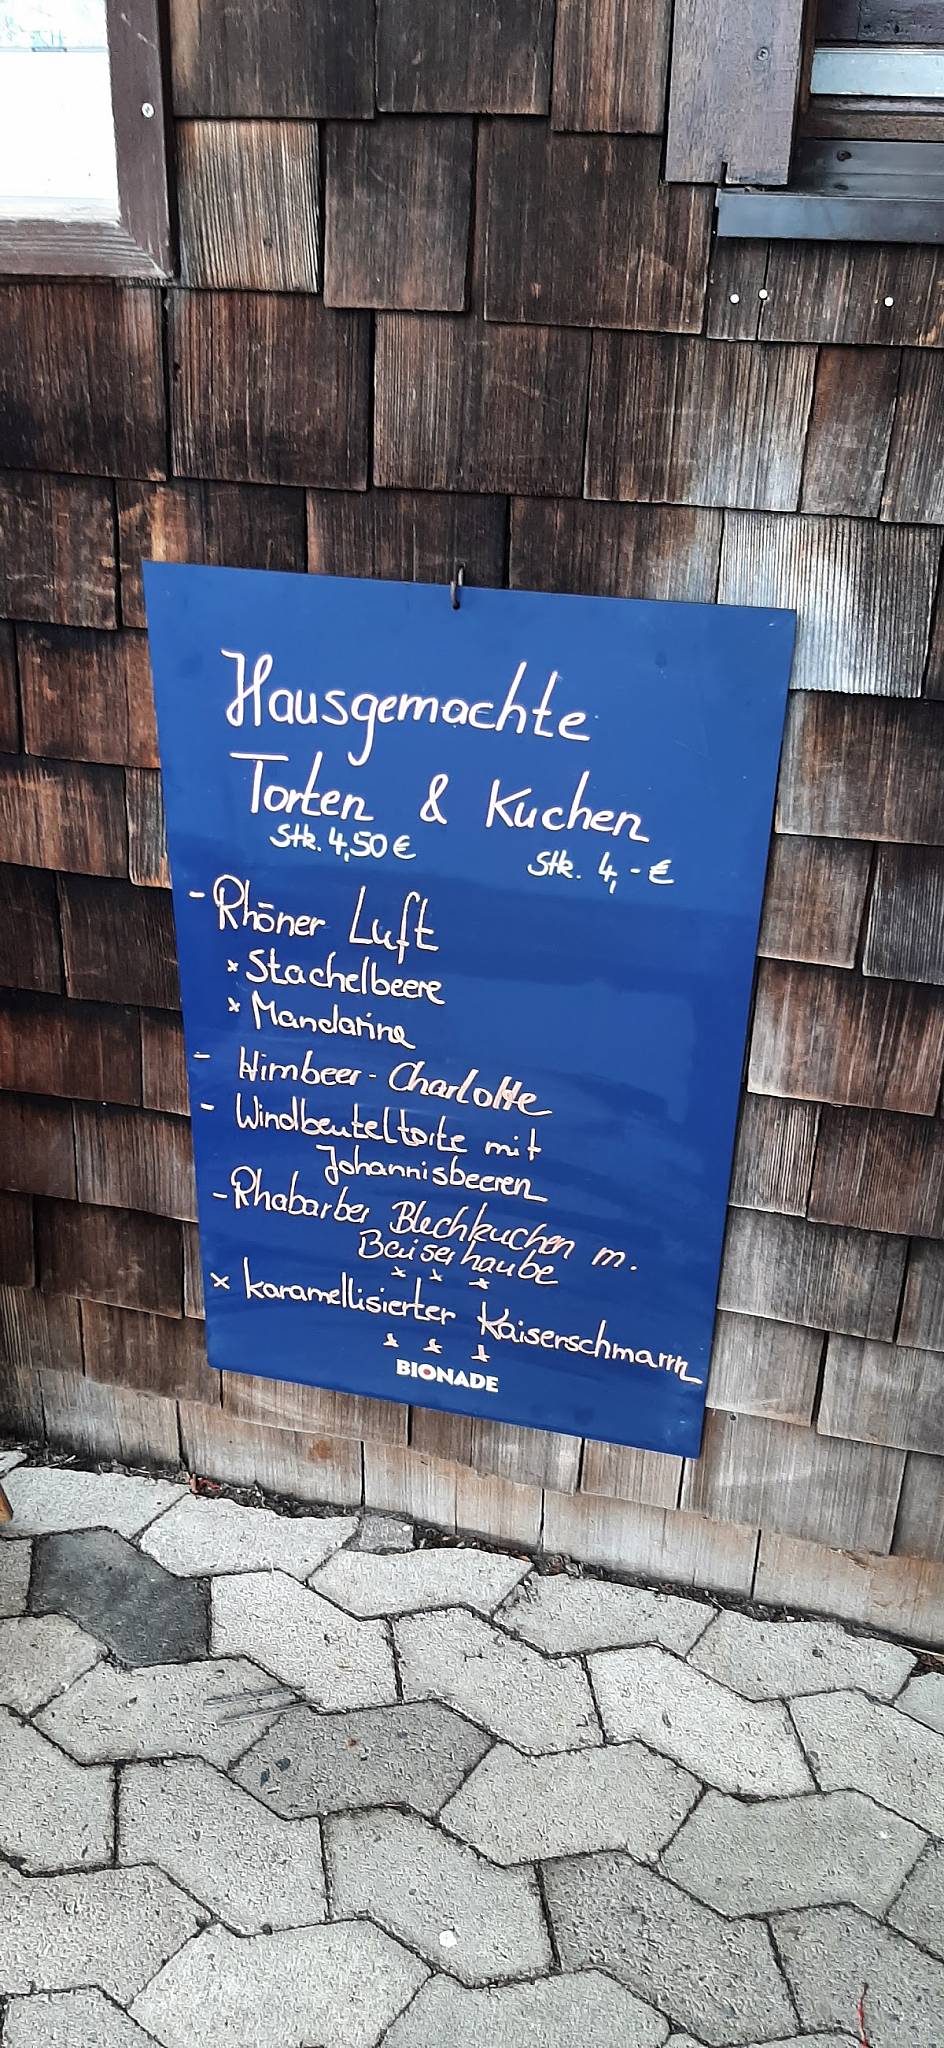 Hausgemachte
Torten & Kuchen
Stk. 4,50 € Stk. 4,- €
- Rhöner Luft
x Stachelbeere
x Mandarine
- Himbeer-Charlotte
- Windbeuteltorte mit
Johannisbeeren
- Rhabarber Blechkuchen m.
Baiserhaube
x x x
x karamellisierter Kaiserschmarrn
x x x
BIONADE